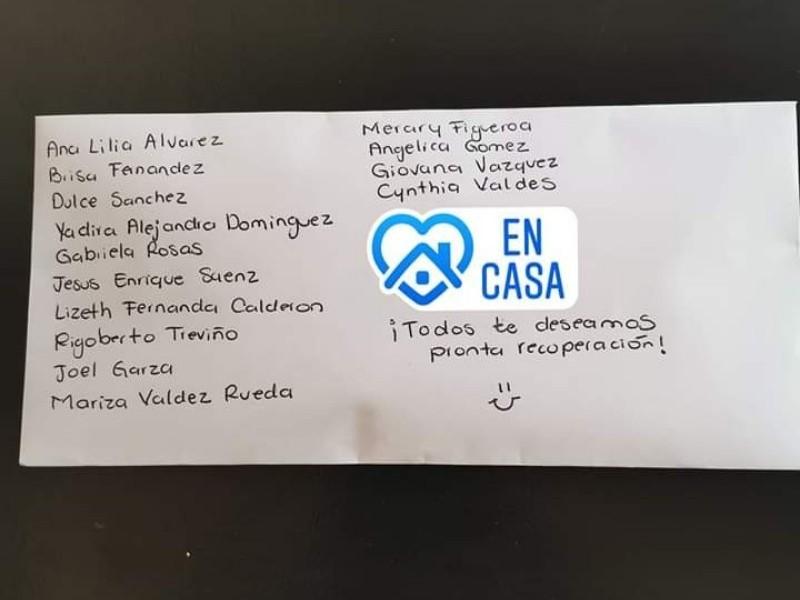 Ana Lilia Alvarez
Brisa Fernandez
Dulce Sanchez
Yadira Alejandra Dominguez
Gabriela Rosas
Jesus Enrique Saenz
Lizeth Fernanda Calderon
Rigoberto Treviño
Joel Garza
Mariza Valdez Rueda
Merary Figueroa
Angelica Gomez
Giovana Vazquez
Cynthia Valdes
EN
CASA
¡Todos te deseamos
pronta recuperación!